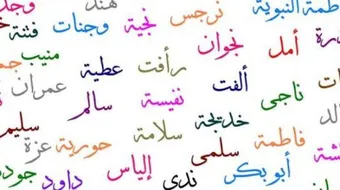 هند
فاطمة النبوية نرجس نجية وجنات فتنة
أمل نجوان رأفت عطية منيب
ناجى ألفت نفيسة سالم عمران
خديجة سلامة حورية عزة سليم
فاطمة سلمى إلياس داود
أبو بكر ندى